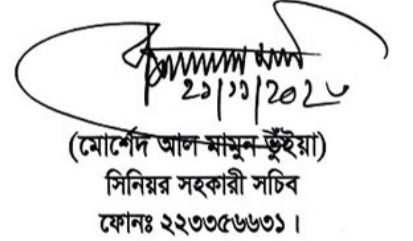 ২১|১১|২০২৮
(মোর্শেদ আল মামুন ভুঁইয়া)
সিনিয়র সহকারী সচিব
ফোনঃ ২২৩৩৫৬৬৩১।